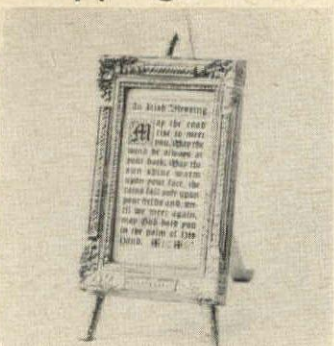 An Irish Blessing
May the road
rise to meet
you. May the
wind be always at
your back. May the
sun shine warm
upon your face, the
rains fall soft upon
your fields and, un-
til we meet again,
may God hold you
in the palm of His
Hand.